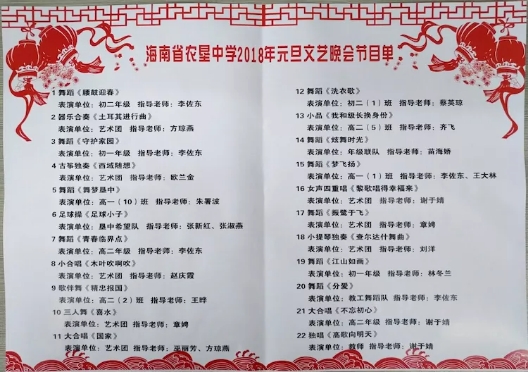 海南省农垦中学2018年元旦文艺晚会节目单
1 舞蹈《腰鼓迎春》
表演单位：初二年级 指导老师：李佐东
2 器乐合奏《土耳其进行曲》
表演单位：艺术团 指导老师：方琼燕
3 舞蹈《守护家园》
表演单位：初一年级 指导老师：李佐东
4 古筝独奏《西域随想》
表演单位：艺术团 指导老师：欧兰金
5 舞蹈《舞梦垦中》
表演单位：高一（10）班 指导老师：朱署波
6 足球操《足球小子》
表演单位：垦中希望队 指导老师：张新红、张淑燕
7 舞蹈《青春临界点》
表演单位：高二年级 指导老师：李佐东
8 小合唱《木叶吹啊吹》
表演单位：艺术团 指导老师：赵庆霞
9 歌伴舞《精忠报国》
表演单位：高二（2）班 指导老师：王晔
10 三人舞《喜水》
表演单位：艺术团 指导老师：章娉
11 大合唱《国家》
表演单位：艺术团 指导老师：巫丽芳、方琼燕
12 舞蹈《洗衣歌》
表演单位：初二（1）班 指导老师：蔡英琼
13 小品《我和组长换身份》
表演单位：高二（5）班 指导老师：齐飞
14 舞蹈《炫舞时光》
表演单位：年级联队 指导老师：苗海娇
15 舞蹈《梦飞扬》
表演单位：高一（1）班 指导老师：李佐东、王大林
16 女声四重唱《黎歌唱得幸福来》
表演单位：艺术团 指导老师：谢于婧
17 舞蹈《振鹭于飞》
表演单位：艺术团 指导老师：章娉
18 小提琴独奏《查尔达什舞曲》
表演单位：艺术团 指导老师：刘洋
19 舞蹈《江山如画》
表演单位：初一年级 指导老师：林冬兰
20 舞蹈《分爱》
表演单位：教工舞蹈队 指导老师：李佐东
21 大合唱《不忘初心》
表演单位：高二年级 指导老师：谢于婧
22 独唱《高歌向明天》
表演单位：教师 指导老师：谢于婧